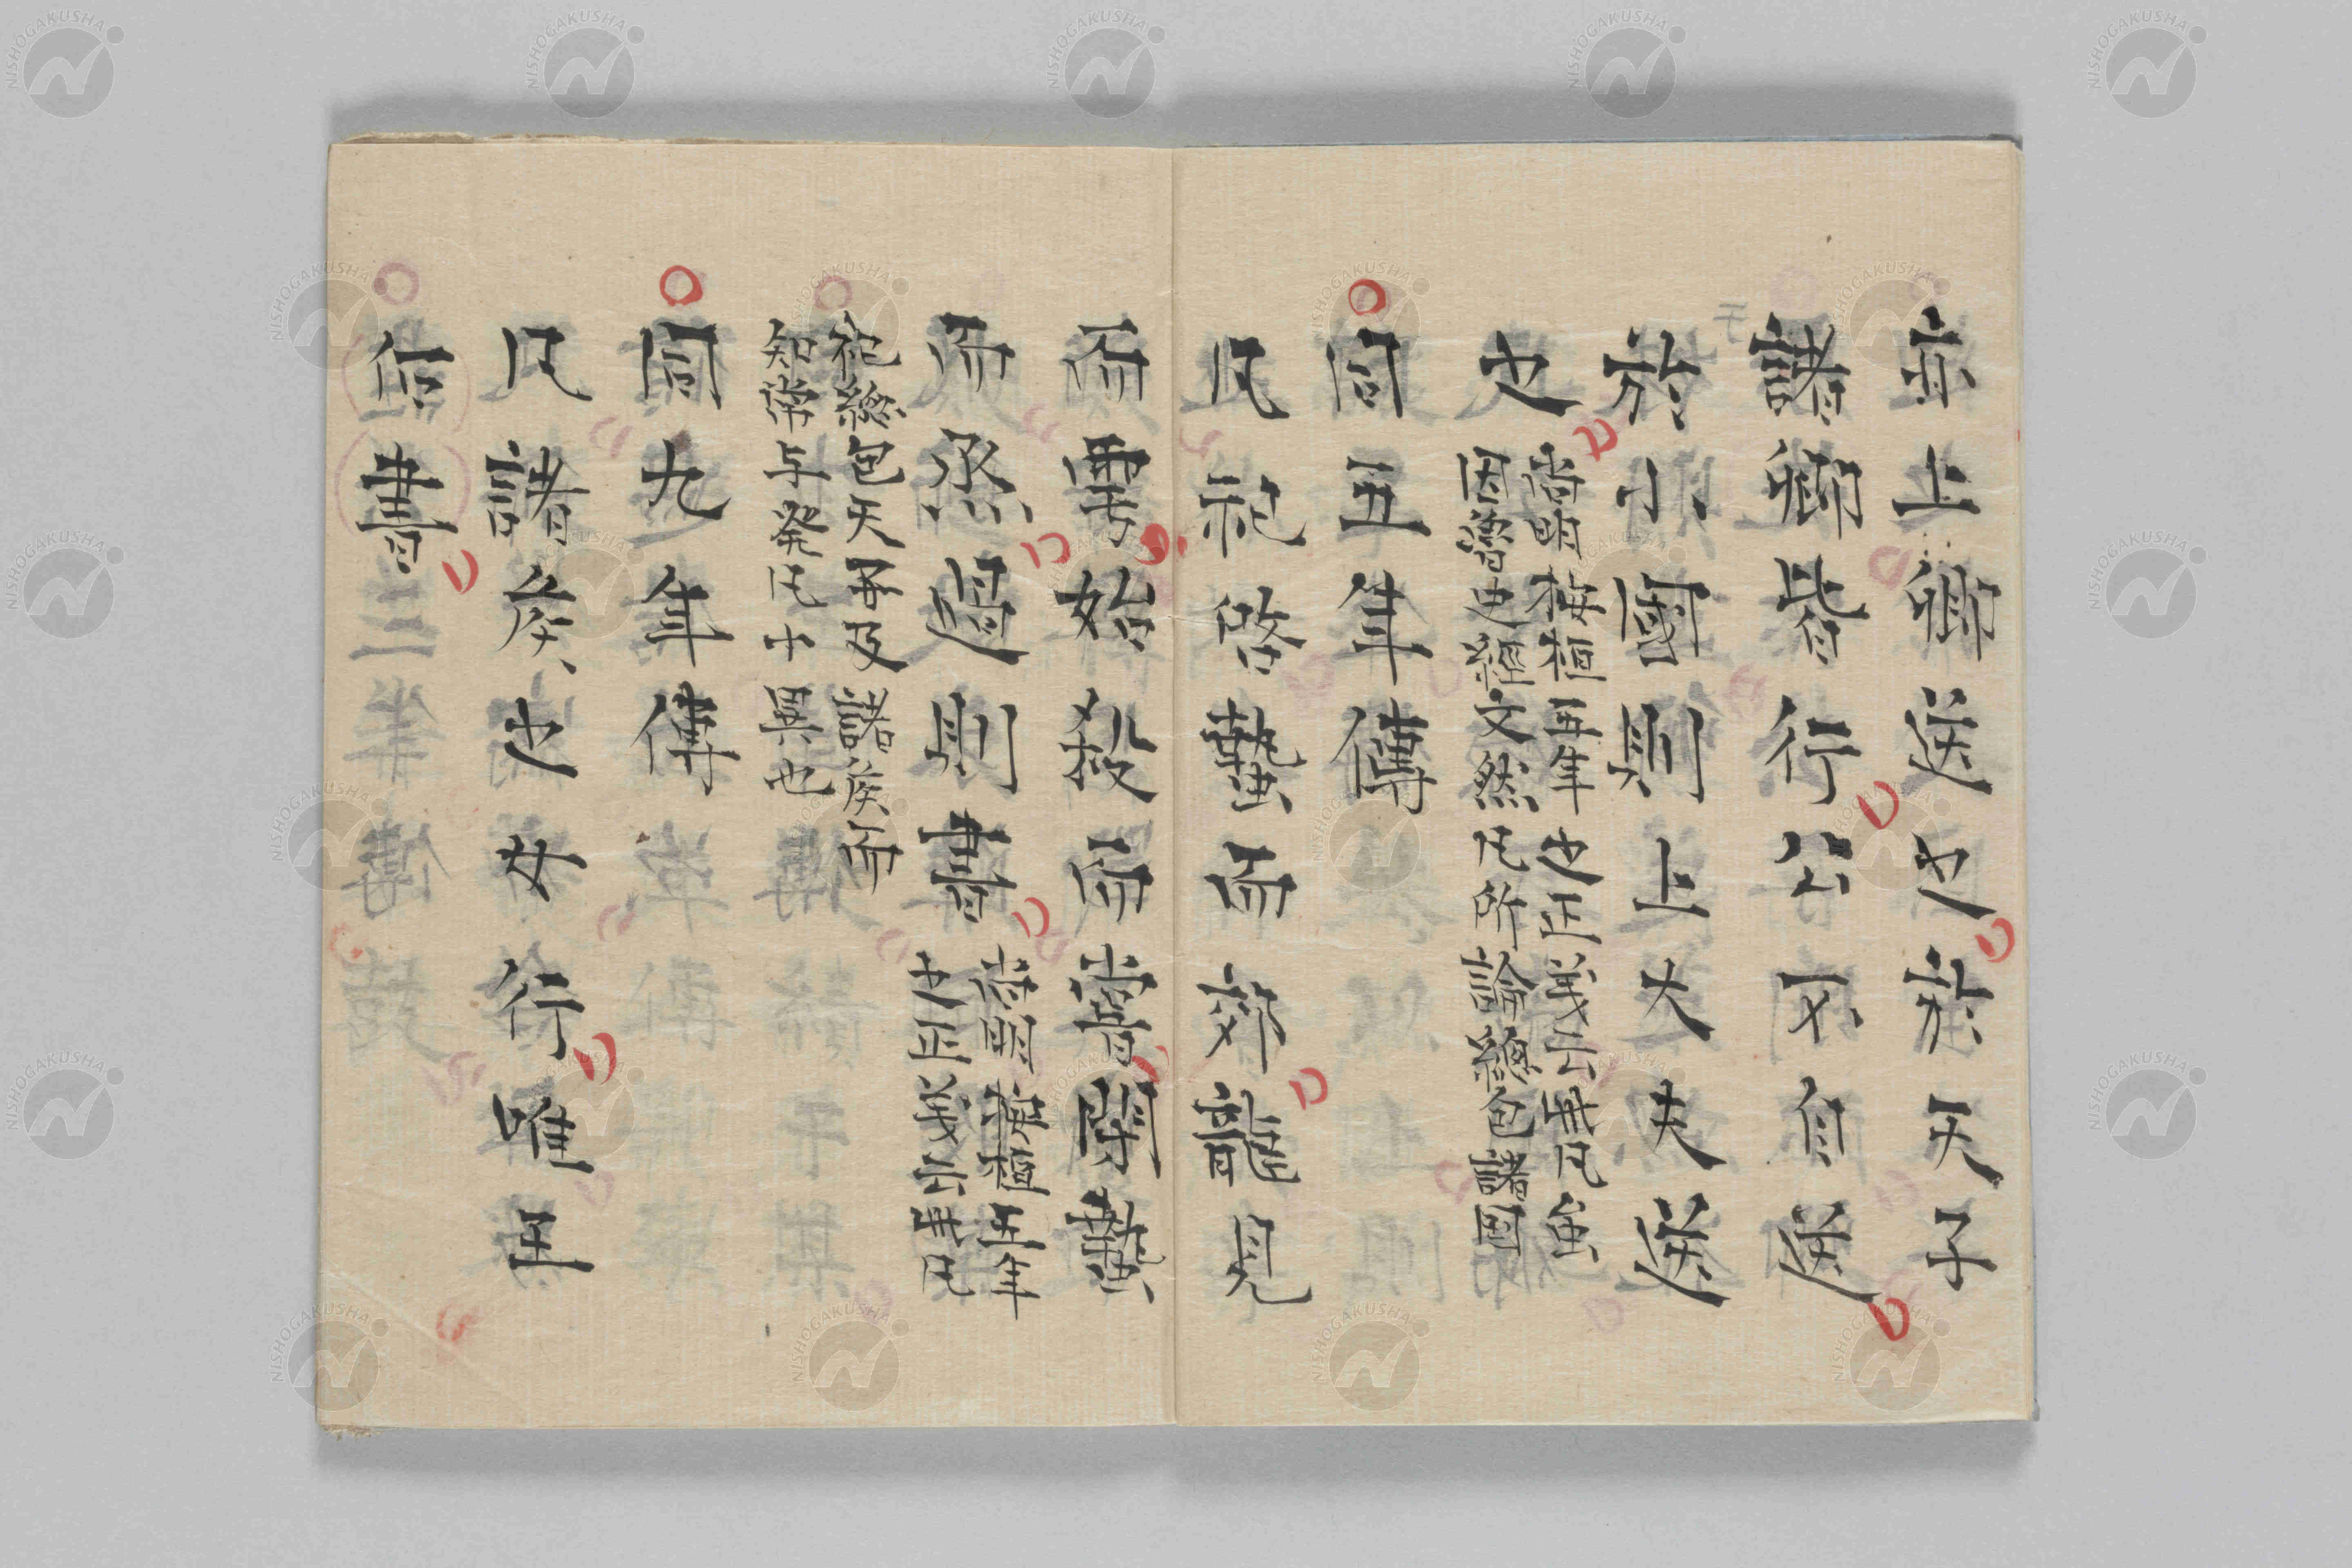 亦上卿送之於天子
諸卿皆行公不自送
於小國則上大夫送
之
明按桓三年之正義云
因舊史雖文然凡所論總包諸國
同五年傳
凡祀啓蟄而郊龍見
而雩始殺而嘗閉蟄
而烝過則書
明按桓五年
之正義云
祀總包天子及諸侯而
知傳発凡異也
同九年傳
凡諸侯之女行唯王
后書
NISHOGAKUSHA